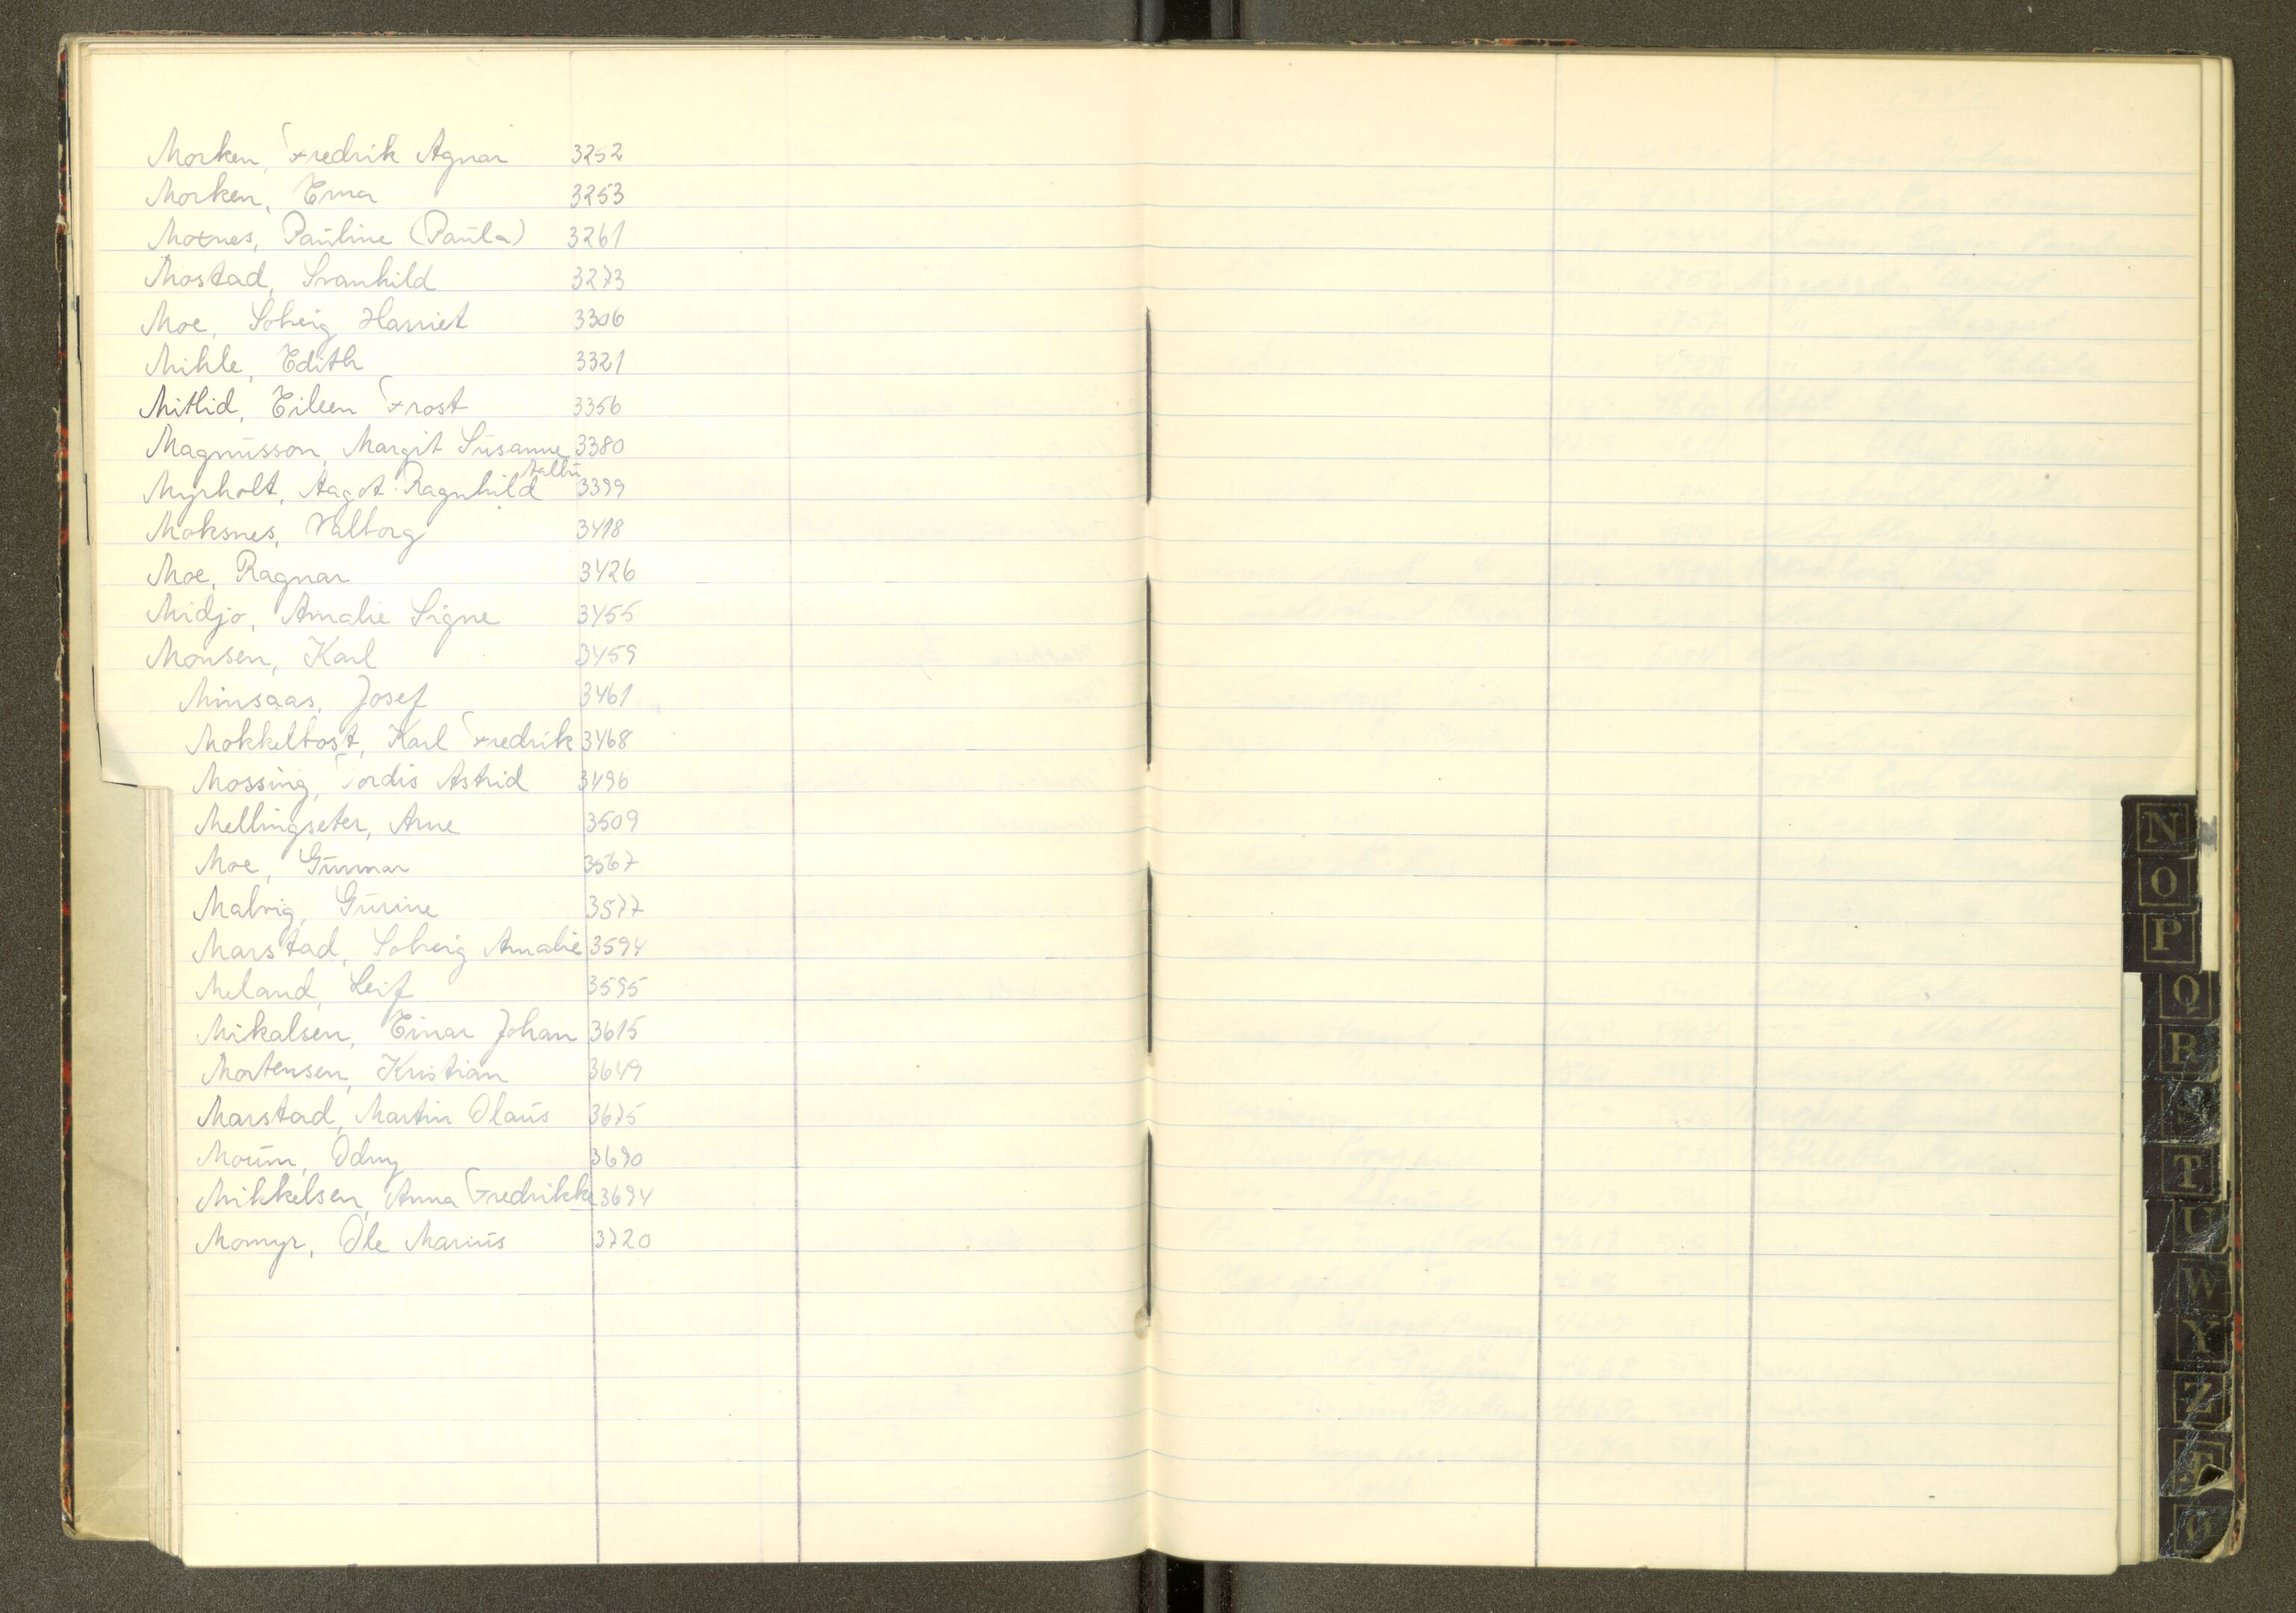 Morken, Fredrik Agnar 3252
Morken, Erna 3253
Moxnes, Pauline (Paula) 3261
Mostad, Svanhild 3273
Moe, Solveig Harriet 3306
Mihle, Edith 3321
Mitlid, Eileen Frost 3356
Magnusson, Margit Susanne 3380
Myrholt, Aagot Ragnhild Aalbu 3399
Moksnes, Valborg 3418
Moe, Ragnar 3426
Midjo, Amalie Signe 3455
Monsen, Karl 3459
Minsaas, Josef 3461
Mokkelbost, Karl Fredrik 3468
Mossing, Tordis Astrid 3496
Mellingseter, Arne 3509
Moe, Gunnar 3567
Malvig, Gurine 3577
Marstad, Solveig Amalie 3594
Meland, Leif 3595
Mikalsen, Einar Johan 3615
Mortensen, Kristian 3649
Marstad, Martin Olaus 3675
Moum, Odny 3690
Mikkelsen, Anna Fredrikke 3694
Momyr, Ole Marius 3720
N
O
P
Q
R
S
T
U
W
Y
Z
Æ
Ø